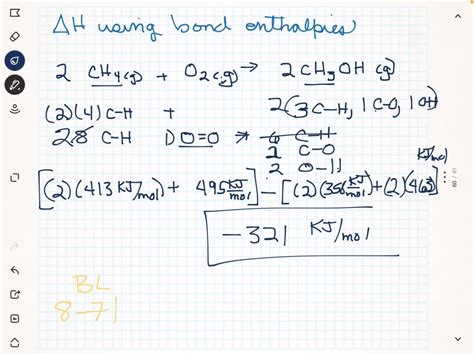 ΔH using bond enthalpies
2 CH₄(g) + O₂(g) → 2 CH₃OH (g)
(2)(4) C-H + 2(3 C-H, 1 C-O, 1 OH)
2 8 C-H 1 O=O → 6 C-H
2 C-O
2 O-H
KJ/mol
[(2)(413 KJ/mol) + 495 KJ/mol] - [(2)(358 KJ/mol) + (2)(463)
-321 KJ/mol
BL
8-71